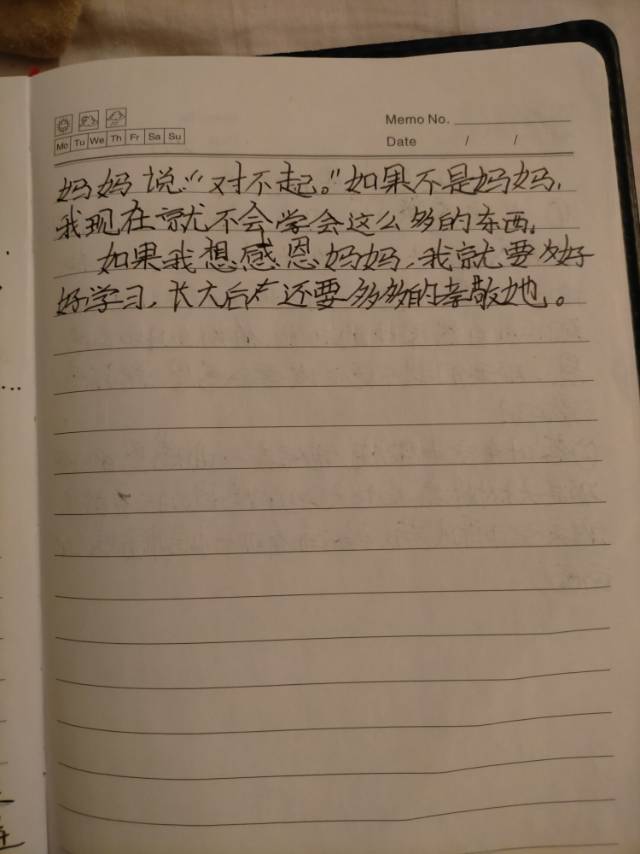 Memo No.
Mo Tu We Th Fr Sa Su
Date / /
妈妈说:“对不起。”如果不是妈妈,
我现在就不会学会这么多的东西。
如果我想感恩妈妈,我就要好
好学习,长大后还要多多的孝敬她。